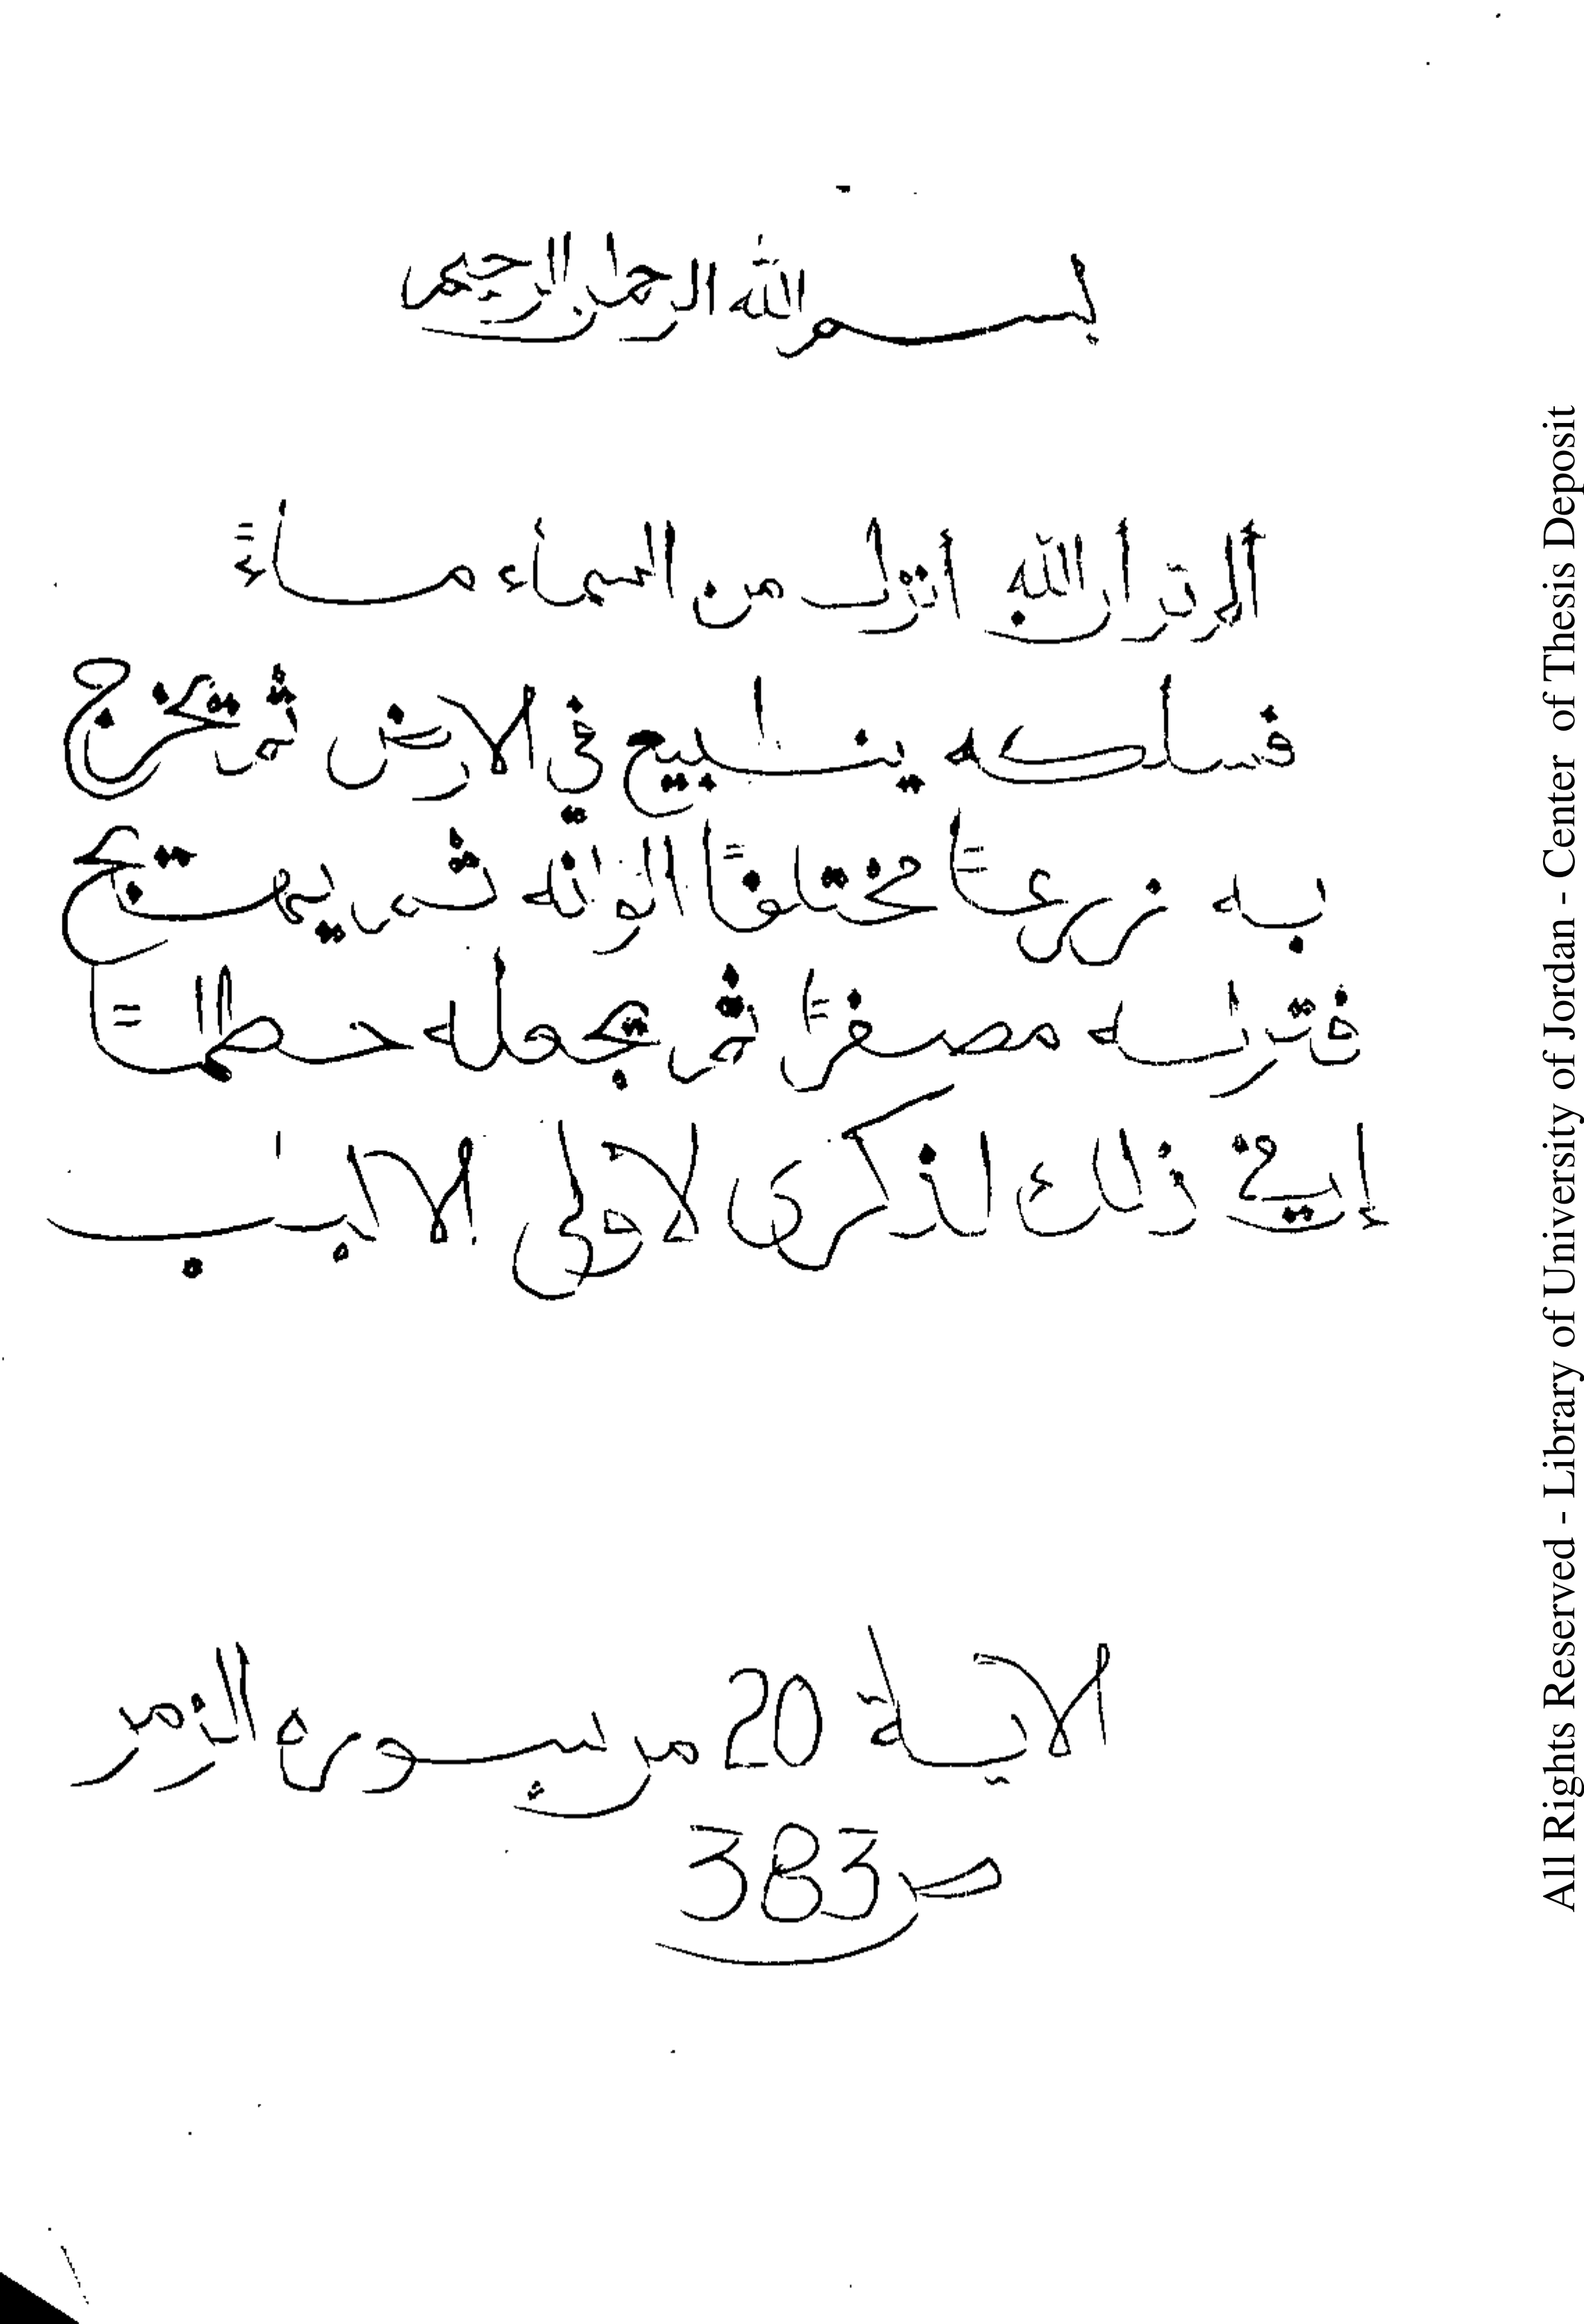 بسم الله الرحمان الرحيم
ألم تر أن الله أنزل من السمأء مــاءً
فسلكه ينٰبيع في الارض ثم يخرج
به زرعاً مختلفاً الوانّه ثم يهيج
فترٰه مصفراً ثم يجعله حطٰماً
إن في ذلك لذكرى لاولي الالبٰب
الايــة 20 من سورة الزمر
ص 383
All Rights Reserved - Library of University of Jordan - Center of Thesis Deposit